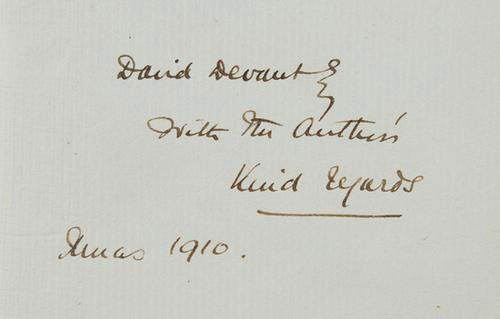 David Devant Esq
with the Author's
Kind regards
Xmas 1910.